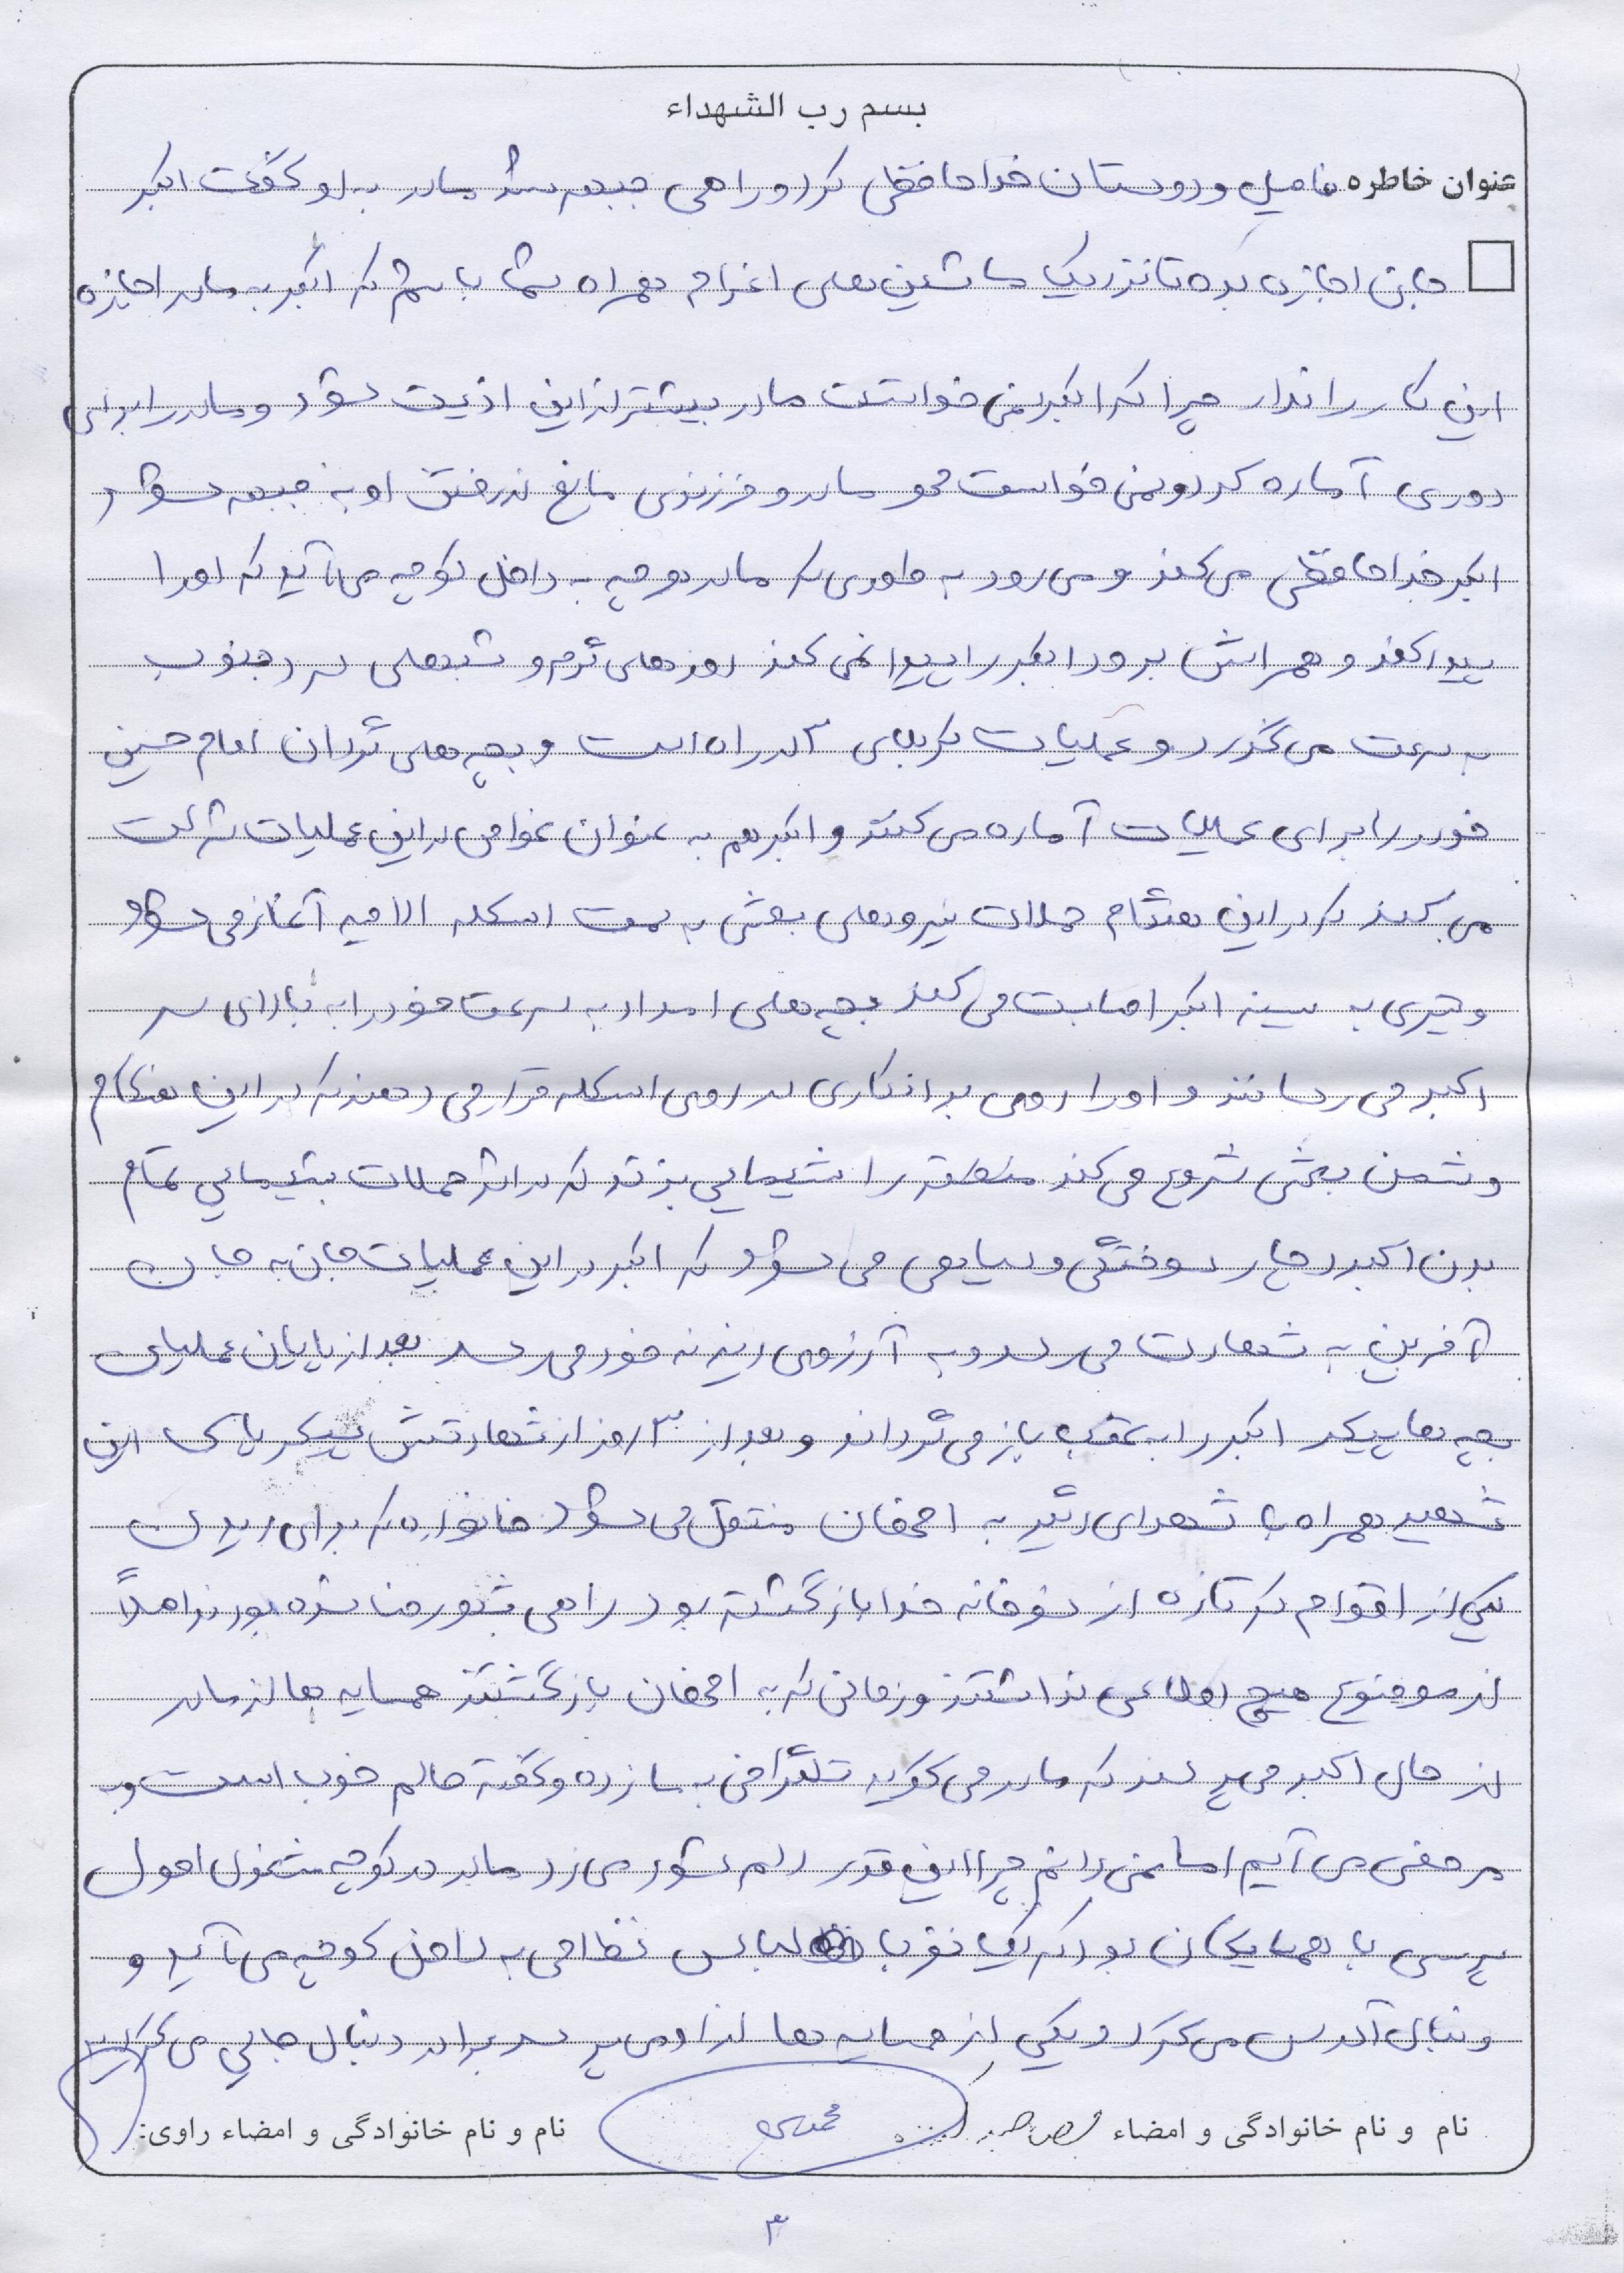 بسم رب الشهداء
عنوان خاطره فامیل و دوستان خداحافظی کرد و راهی جبهه شد مادر به او گفت اکبر
جان اجازه بده تا نزدیک ماشین های اعزام همراه شما باشم که اکبر به مادر اجازه
این کار را نداد چرا که اکبر نمی خواست مادر بیشتر از این اذیت شود و مادر را برای
دوری آماده کرد و نمی خواست محو مادر و فرزندی مانع از رفتن او به جبهه شود
اکبر خداحافظی می کند و می رود به طوری که مادر هر چه به داخل کوچه می آید که او را
پیدا کند و همراش برود اکبر را پیدا نمی کند روزهای گرم و شبهای سرد جنوب
به سرعت می گذرد و عملیات کربلای ۴ در راه است و بچه های گردان امام حسین
خود را برای عملیات آماده می کنند و اکبر هم به عنوان غواص در این عملیات شرکت
می کند که در این هنگام حملات نیروهای بعثی به سمت اسکله الامیه آغاز می شود
و تیری به سینه اکبر اصابت می کند بچه های امداد به سرعت خود را به بالای سر
اکبر می رسانند و او را روی برانکاری در روی اسکله قرار می دهند که در این هنگام
دشمن بعثی شروع می کند منطقه را شیمایی بزند که در اثر حملات شیمایی تمام
بدن اکبر دچار سوختگی و سیاهی می شود که اکبر در این عملیات جان به جان
آفرین به شهادت می رسد و به آرزوی دیرینه خود می رسد بعد از پایان عملیات
بچه ها پیکر اکبر را به عقب باز می گرداند و بعد از ۳ روز از شهادتش پیکر پاک این
شهید همراه با شهدای دیگر به اصفهان منتقل می شود خانواده که برای دیدن
یکی از اقوام که تازه از خانه خدا بازگشته بود راهی شهر رضا شده بودند اصلاً
از موضوع هیچ اطلاعی نداشتند و زمانی که به اصفهان بازگشتند همسایه ها از مادر
از حال اکبر می پرسند که مادر می گوید تلگرافی به ما زده و گفته حالم خوب است و به
مرخصی می آیم اما نمی دانم چرا این قدر دلم شور می زد مادر در کوچه مشغول احوال
پرسی با همسایگان بود که یک نفر با لباس نظامی به داخل کوچه می آید و
دنبال آدرس می گردد یکی از همسایه ها از او می پرسد برادر دنبال جایی می گردید
نام و نام خانوادگی و امضاء
نام و نام خانوادگی و امضاء راوی:
۳